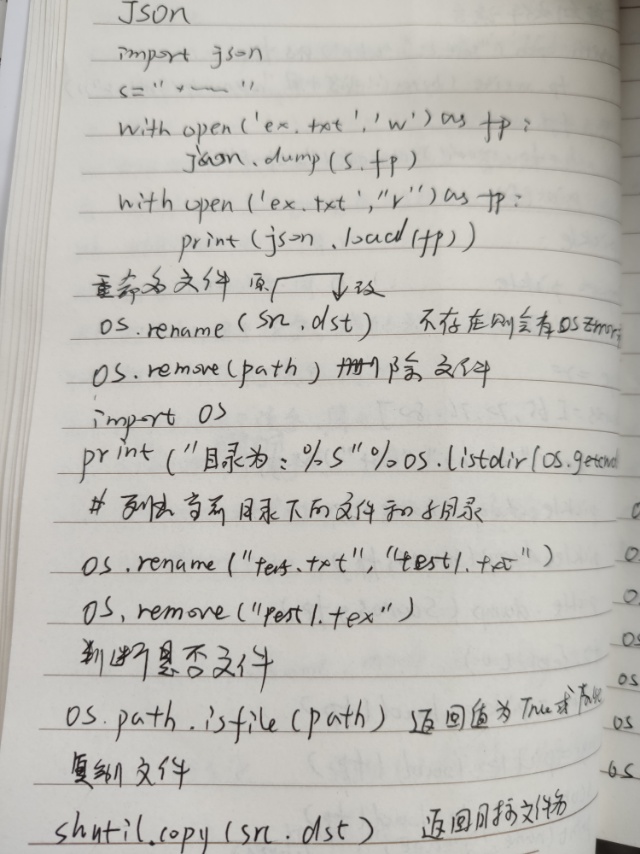 Json
import json
s=" "
with open('ex.txt','w')as fp:
json.dump(s.fp)
with open('ex.txt',"r")as fp:
print(json.load(fp))
重命名文件 原 改
os.rename(src.dst) 不存在则会有OSError
os.remove(path) 删除文件
import os
print("目录为:%s"%os.listdir(os.getcwd
# 列出当前目录下的文件和子目录
os.rename("test.txt","test1.txt")
os.remove("test1.tex")
判断是否文件
os.path.isfile(path) 返回值为True或
复制文件
shutil.copy(src.dst) 返回目标文件名
os
os
os
os